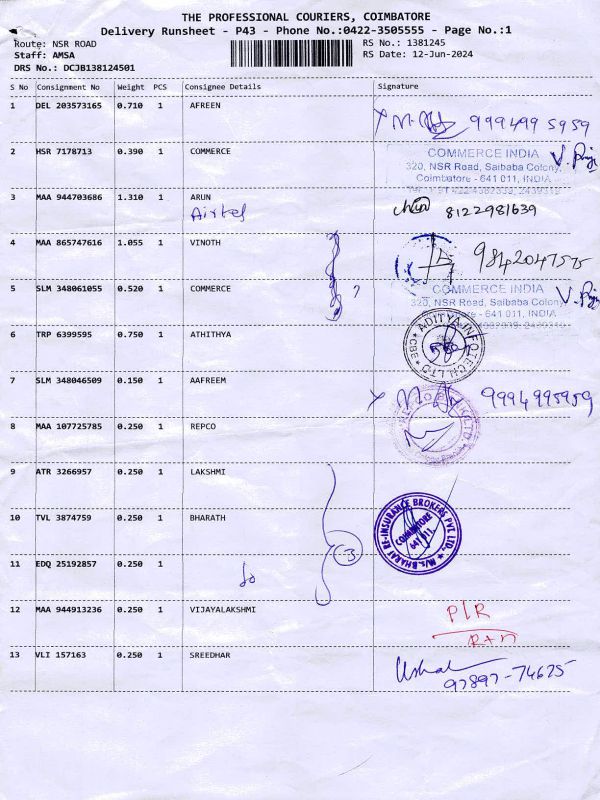 THE PROFESSIONAL COURIERS, COIMBATORE
Delivery Runsheet - P43 - Phone No.:0422-3505555 - Page No.:1
Route: NSR ROAD RS No.: 1381245
Staff: AMSA RS Date: 12-Jun-2024
DRS No.: DCJB138124501
S No Consignment No Weight PCS Consignee Details Signature
1 DEL 203573165 0.710 1 AFREEN
9994995959
2 HSR 7178713 0.390 1 COMMERCE
COMMERCE INDIA
320, NSR Road, Saibaba Colony,
Coimbatore - 641 011, INDIA
3 MAA 944703686 1.310 1 ARUN
Airtel 8122981639
4 MAA 865747616 1.055 1 VINOTH
9842047575
5 SLM 348061055 0.520 1 COMMERCE ?
COMMERCE INDIA
320, NSR Road, Saibaba Colony
- 641 011, INDIA
6 TRP 6399595 0.750 1 ATHITHYA
ADITYA INFOTECH LTD
CBE
7 SLM 348046509 0.150 1 AAFREEM
9994995959
8 MAA 107725785 0.250 1 REPCO
9 ATR 3266957 0.250 1 LAKSHMI
10 TVL 3874759 0.250 1 BHARATH
M/s. BHARAT RE-INSURANCE BROKERS PVT. LTD.
COIMBATORE
641 011
11 EDQ 25192857 0.250 1
3
12 MAA 944913236 0.250 1 VIJAYALAKSHMI
P/R
13 VLI 157163 0.250 1 SREEDHAR
97897-74675